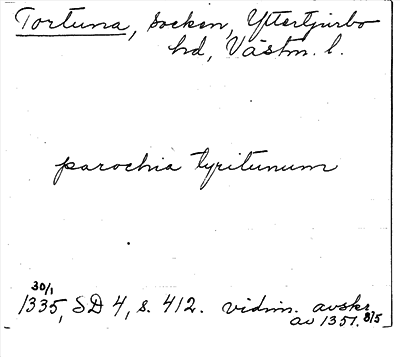 Tortuna, socken, Yttertjurbo
hd, Västm. l.
parochia tyritunum
30/1
1335, SD 4, s. 412. vidim. avskr.
av 1351. 8/5